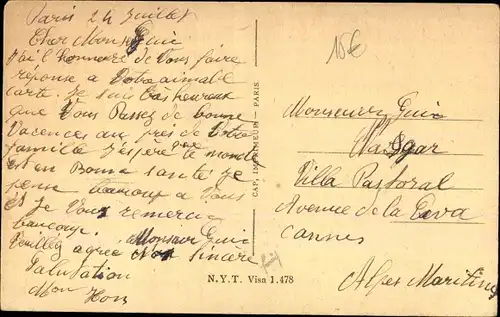 Paris 24 Juillet
Cher Monsieur Guie
J'ai l'honneure de Vous faire
réponse a Votre aimable
carte. Je suis tres heureux
que Vous Passez de bonne
Vacences au près de Votre
famille J'espère que le monde
est en Bonne santé Je
pense beaucoup a Vous
et Je Vous remercie
baucoup.
Veuillez agree Monsieur Guie
Mon sincère
Salutation
Mon
CAP, IMPRIMEUR - PARIS
N.Y.T. Visa 1.478
15€
Monsieur Guie
Villa Pastoral
Avenue de la
Cannes
Alpes Maritime